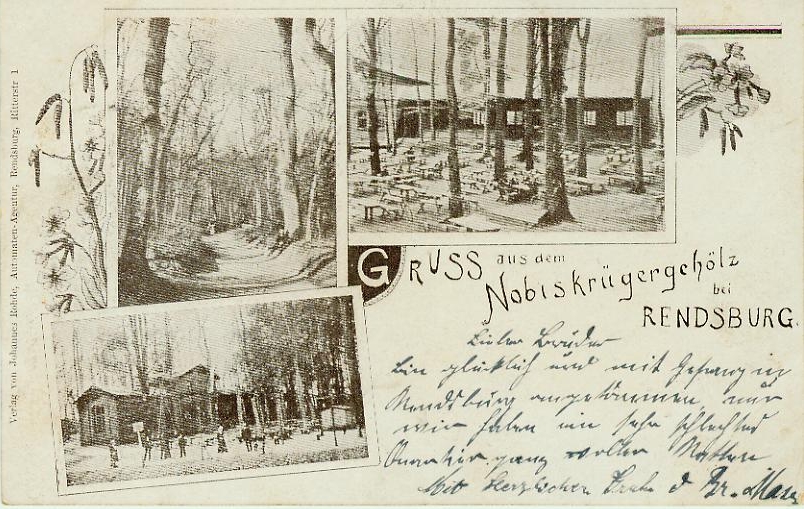 Verlag von Johannes Rohde, Automaten-Agentur, Rendsburg, Ritterstr 1
GRUSS aus dem
Nobiskrügergehölz
bei
RENDSBURG.
Lieber Bruder
Bin glücklich und mit Gesang in
Rendsburg angekommen, nur
wir haben ein sehr schlechtes
Quartier ganz voller
Mit Herzlichen Br.